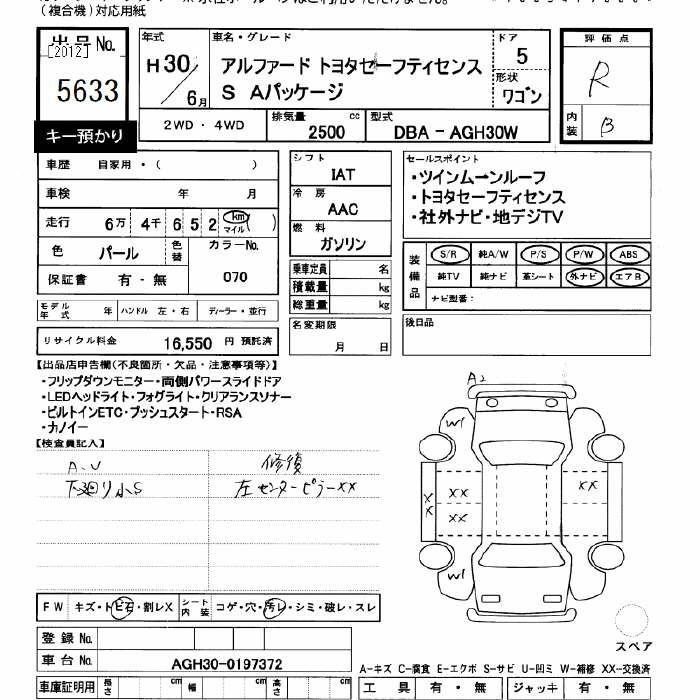 (複合機)対応用紙
出品No.
[2012]
5633
キー預かり
年式
H30/6月
車名・グレード
アルファード トヨタセーフティセンス
S Aパッケージ
ドア
5
形状
ワゴン
評価点
R
内装
B
2WD・4WD
排気量 cc
2500
型式
DBA - AGH30W
車歴 自家用・( )
車検 年 月
走行 6万 4千 6 5 2 km マイル ( )
色 パール 色替 カラーNo. 070
保証書 有・無
モデル年式 年 ハンドル 左・右 ディーラー・並行
リサイクル料金 16,550 円 預託済
シフト
IAT
冷房
AAC
燃料
ガソリン
乗車定員 名
積載量 kg
総重量 kg
名変期限
月 日
セールスポイント
・ツインムーンルーフ
・トヨタセーフティセンス
・社外ナビ・地デジTV
装備品
S/R 純A/W P/S P/W ABS
純TV 純ナビ 革シート 外ナビ エアB
ナビ型番:
後日品
【出品店申告欄(不良箇所・欠品・注意事項等)】
・フリップダウンモニター・両側パワースライドドア
・LEDヘッドライト・フォグライト・クリアランスソナー
・ビルトインETC・プッシュスタート・RSA
・カノイー
【検査員記入】
A.U
下廻り小S
修復
左センターピラーXX
A2
W1
XX
XX
XX
XX
W1
FW キズ・トビ石・割レX シート内装 コゲ・穴・汚レ・シミ・破レ・スレ
登録No.
車台No. AGH30-0197372
車庫証明用 長さ cm 幅 cm 高さ cm
スペア
A-キズ C-腐食 E-エクボ S-サビ U-凹ミ W-補修 XX-交換済
工具 有・無 ジャッキ 有・無